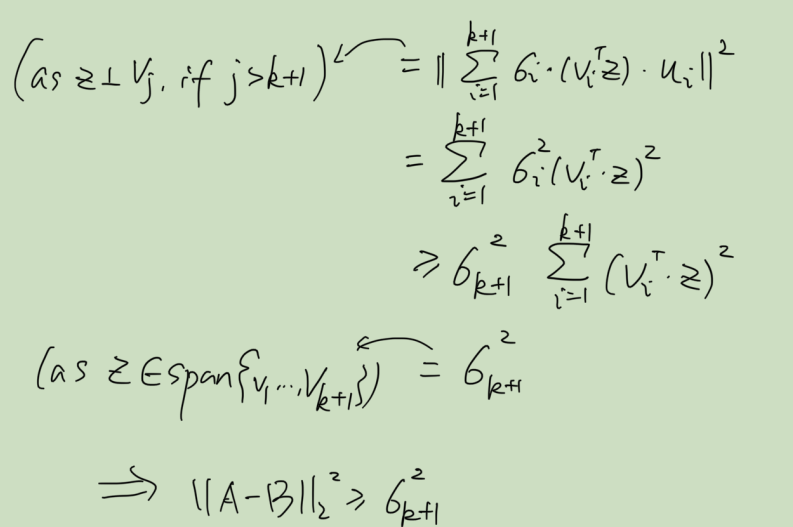 (as z ⊥ Vj. if j>k+1) ↙ = ‖ ∑_{i=1}^{k+1} σi·(Vi^T z)·ui‖²
= ∑_{i=1}^{k+1} σi²(Vi^T·z)²
≥ σ_{k+1}² ∑_{i=1}^{k+1} (Vi^T·z)²
(as z ∈ span{v1...,V_{k+1}}) ← = σ_{k+1}²
⟹ ‖A-B‖₂² ≥ σ_{k+1}²